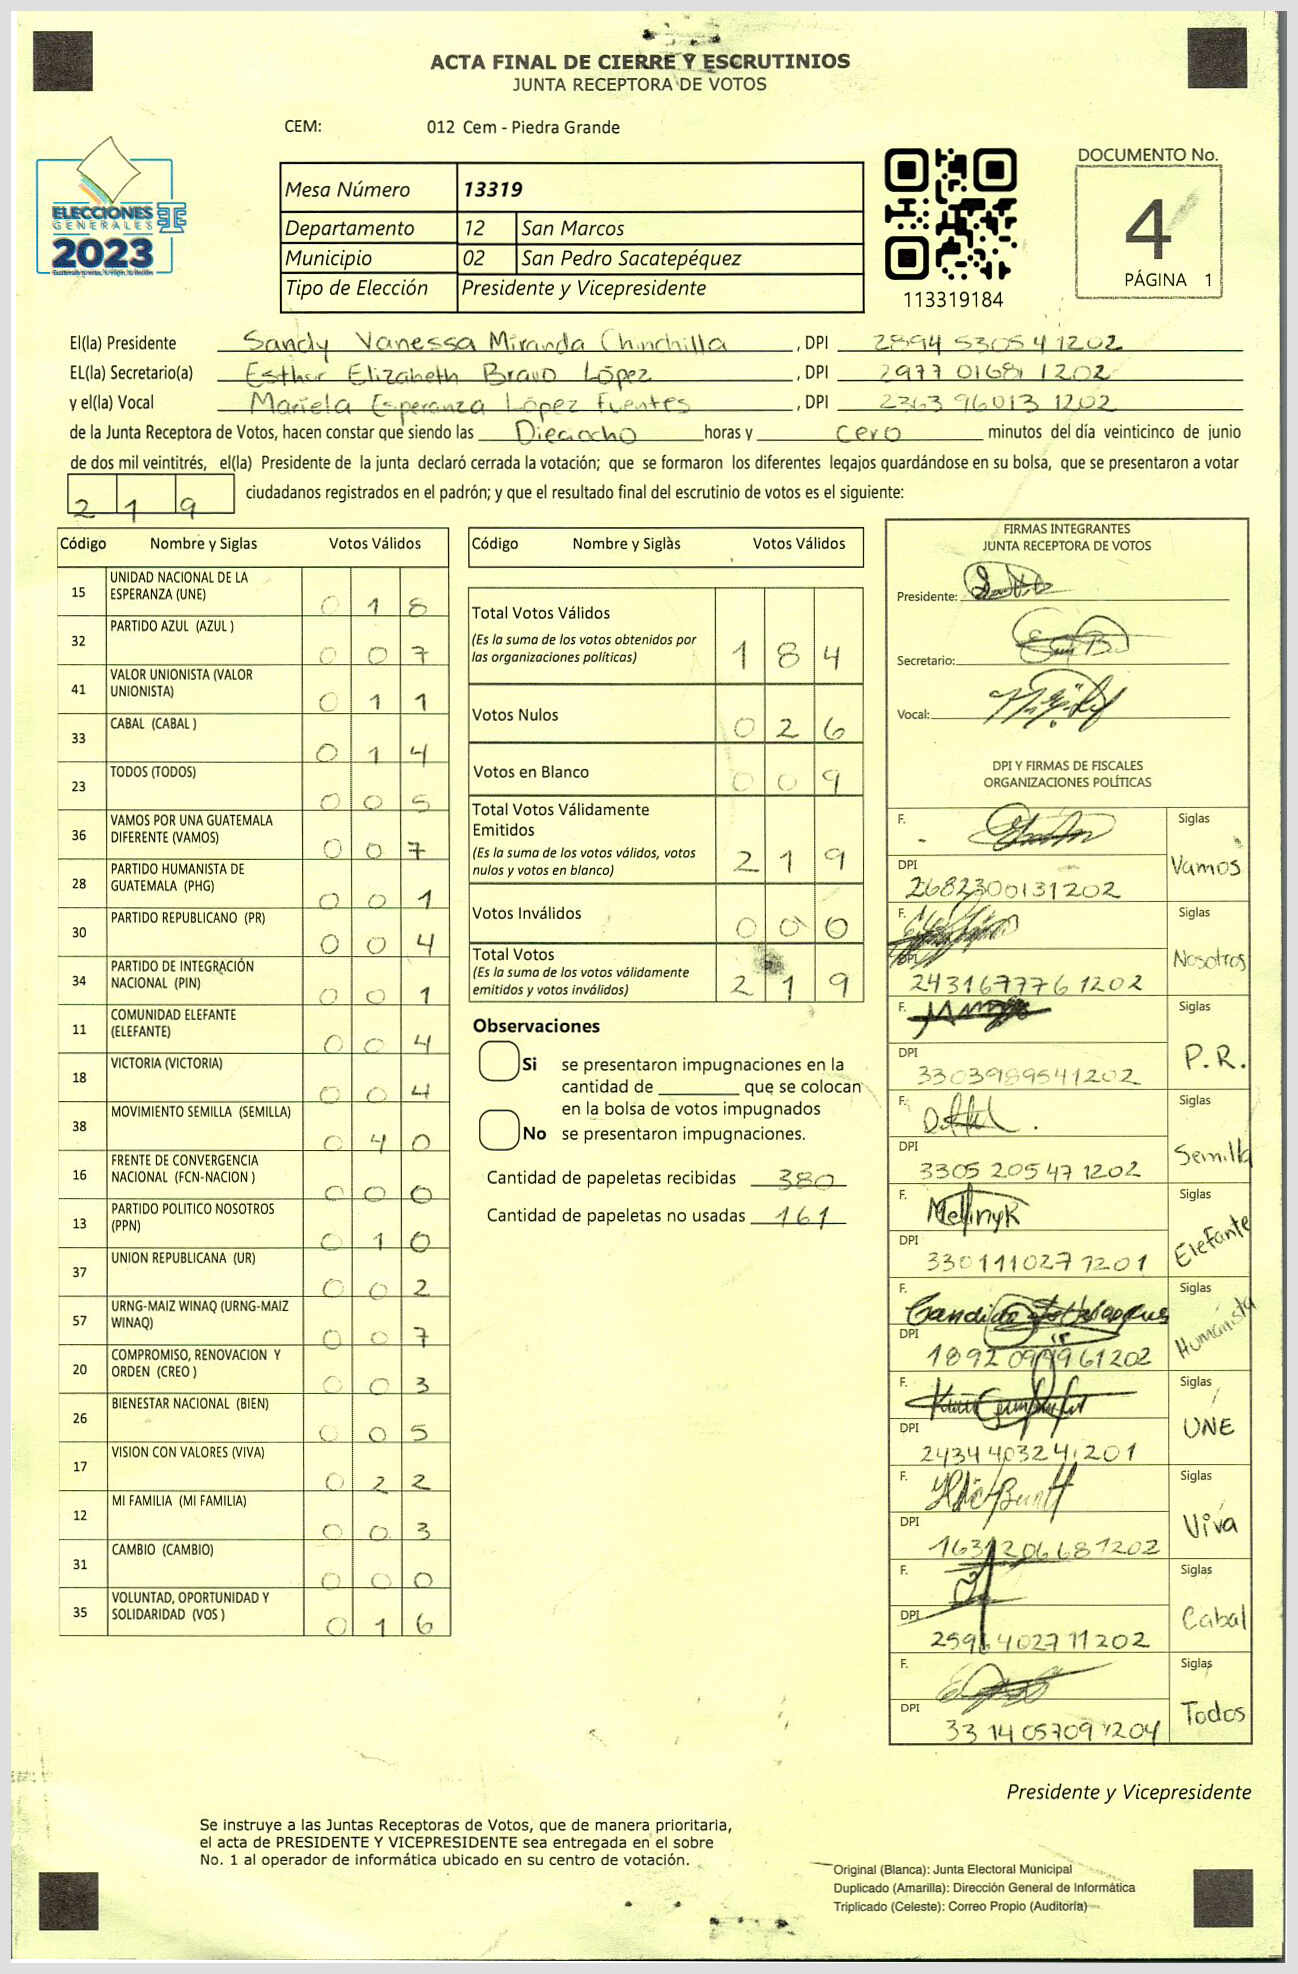 ACTA FINAL DE CIERRE Y ESCRUTINIOS
JUNTA RECEPTORA DE VOTOS
CEM: 012 Cem - Piedra Grande
ELECCIONES
GENERALES
2023
Mesa Número 13319
Departamento 12 San Marcos
Municipio 02 San Pedro Sacatepéquez
Tipo de Elección Presidente y Vicepresidente
113319184
DOCUMENTO No.
4
PÁGINA 1
El(la) Presidente Sandy Vanessa Miranda Chinchilla, DPI 2894 53054 1202
EL(la) Secretario(a) Esther Elizabeth Bravo López, DPI 2977 01681 1202
y el(la) Vocal Mariela Esperanza López Fuentes, DPI 2363 96013 1202
de la Junta Receptora de Votos, hacen constar que siendo las Dieciocho horas y cero minutos del día veinticinco de junio
de dos mil veintitrés, el(la) Presidente de la junta declaró cerrada la votación; que se formaron los diferentes legajos guardándose en su bolsa, que se presentaron a votar
2 1 9 ciudadanos registrados en el padrón; y que el resultado final del escrutinio de votos es el siguiente:
Código Nombre y Siglas Votos Válidos
15 UNIDAD NACIONAL DE LA ESPERANZA (UNE) 0 1 8
32 PARTIDO AZUL (AZUL ) 0 0 7
41 VALOR UNIONISTA (VALOR UNIONISTA) 0 1 1
33 CABAL (CABAL ) 0 1 4
23 TODOS (TODOS) 0 0 5
36 VAMOS POR UNA GUATEMALA DIFERENTE (VAMOS) 0 0 7
28 PARTIDO HUMANISTA DE GUATEMALA (PHG) 0 0 1
30 PARTIDO REPUBLICANO (PR) 0 0 4
34 PARTIDO DE INTEGRACIÓN NACIONAL (PIN) 0 0 1
11 COMUNIDAD ELEFANTE (ELEFANTE) 0 0 4
18 VICTORIA (VICTORIA) 0 0 4
38 MOVIMIENTO SEMILLA (SEMILLA) 0 4 0
16 FRENTE DE CONVERGENCIA NACIONAL (FCN-NACION ) 0 0 0
13 PARTIDO POLITICO NOSOTROS (PPN) 0 1 0
37 UNION REPUBLICANA (UR) 0 0 2
57 URNG-MAIZ WINAQ (URNG-MAIZ WINAQ) 0 0 7
20 COMPROMISO, RENOVACION Y ORDEN (CREO ) 0 0 3
26 BIENESTAR NACIONAL (BIEN) 0 0 5
17 VISION CON VALORES (VIVA) 0 2 2
12 MI FAMILIA (MI FAMILIA) 0 0 3
31 CAMBIO (CAMBIO) 0 0 0
35 VOLUNTAD, OPORTUNIDAD Y SOLIDARIDAD (VOS ) 0 1 6
Código Nombre y Siglas Votos Válidos
Total Votos Válidos
(Es la suma de los votos obtenidos por
las organizaciones políticas) 1 8 4
Votos Nulos 0 2 6
Votos en Blanco 0 0 9
Total Votos Válidamente
Emitidos
(Es la suma de los votos válidos, votos
nulos y votos en blanco) 2 1 9
Votos Inválidos 0 0 0
Total Votos
(Es la suma de los votos válidamente
emitidos y votos inválidos) 2 1 9
Observaciones
Si se presentaron impugnaciones en la
cantidad de ________ que se colocan
en la bolsa de votos impugnados
No se presentaron impugnaciones.
Cantidad de papeletas recibidas 380
Cantidad de papeletas no usadas 161
FIRMAS INTEGRANTES
JUNTA RECEPTORA DE VOTOS
Presidente:
Secretario:
Vocal:
DPI Y FIRMAS DE FISCALES
ORGANIZACIONES POLÍTICAS
F. Siglas
Vamos
DPI
2682300131202
F. Siglas
Nosotros
DPI
2431677761202
F. Siglas
P.R.
DPI
3303989541202
F. Siglas
Semilla
DPI
3305 20547 1202
F. Siglas
Elefante
DPI
3301110271201
F. Siglas
Humanista
DPI
F. Siglas
UNE
DPI
2434403241201
F. Siglas
Viva
DPI
1631206681202
F. Siglas
Cabal
DPI
2596402711202
F. Siglas
Todos
DPI
3314057091204
Presidente y Vicepresidente
Se instruye a las Juntas Receptoras de Votos, que de manera prioritaria,
el acta de PRESIDENTE Y VICEPRESIDENTE sea entregada en el sobre
No. 1 al operador de informática ubicado en su centro de votación.
Original (Blanca): Junta Electoral Municipal
Duplicado (Amarilla): Dirección General de Informática
Triplicado (Celeste): Correo Propio (Auditoría)